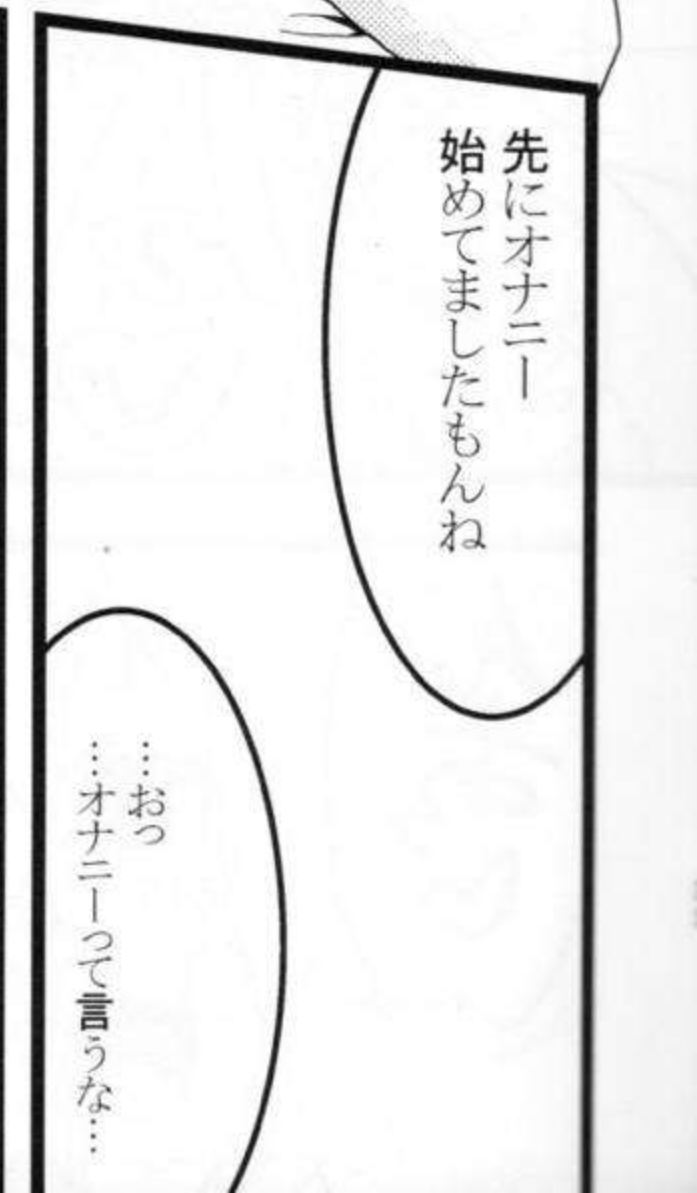 先にオナニー
始めてましたもんね
…おっ
…オナニーって言うな…